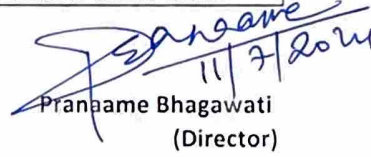 Pranaame
11/7/2024
Pranaame Bhagawati
(Director)